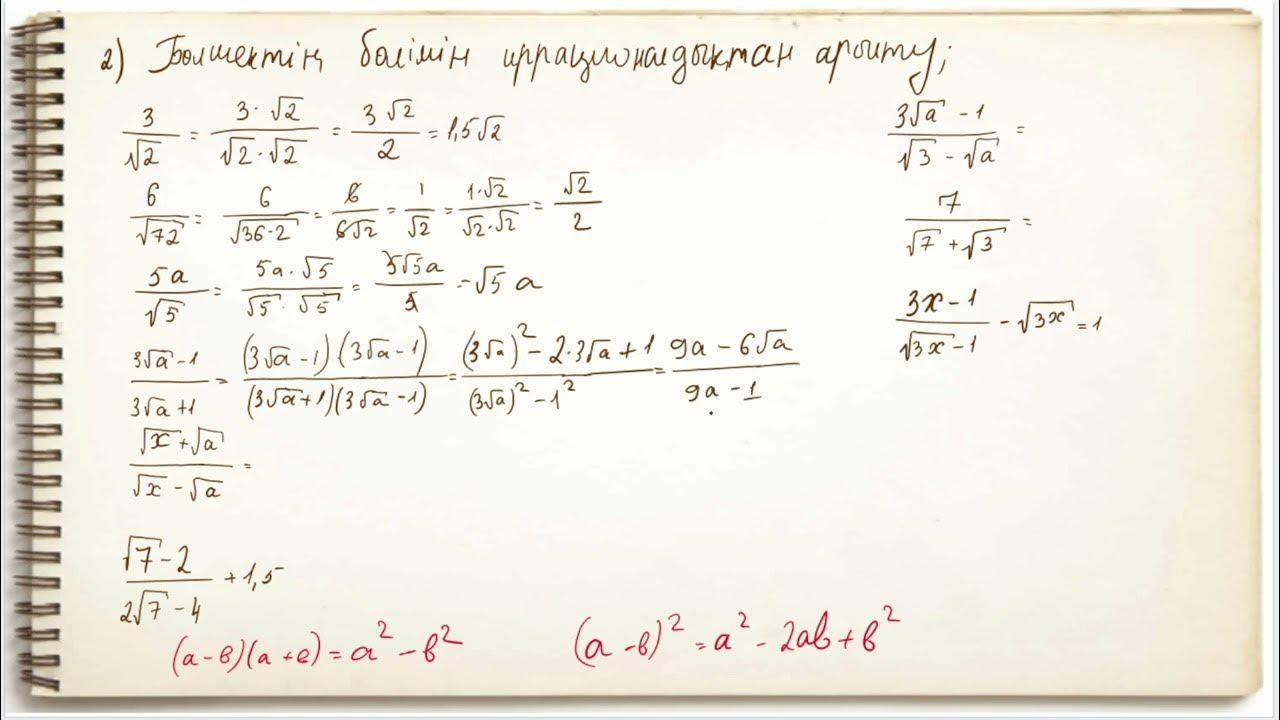 2) Бөлшектің бөлімін иррационалдықтан арылту;
3/√2 = 3·√2/√2·√2 = 3√2/2 = 1,5√2
6/√72 = 6/√36·2 = 6/6√2 = 1/√2 = 1·√2/√2·√2 = √2/2
5a/√5 = 5a·√5/√5·√5 = 5√5a/5 = √5 a
3√a-1/3√a+1 = (3√a-1)(3√a-1)/(3√a+1)(3√a-1) = (3√a)²-2·3√a+1/(3√a)²-1² = 9a-6√a/9a-1
√x+√a/√x-√a =
√7-2/2√7-4 + 1,5
(a-в)(a+в)=a²-в²
(a-в)²=a²-2aв+в²
3√a-1/√3-√a =
7/√7+√3 =
3x-1/√3x-1 - √3x = 1